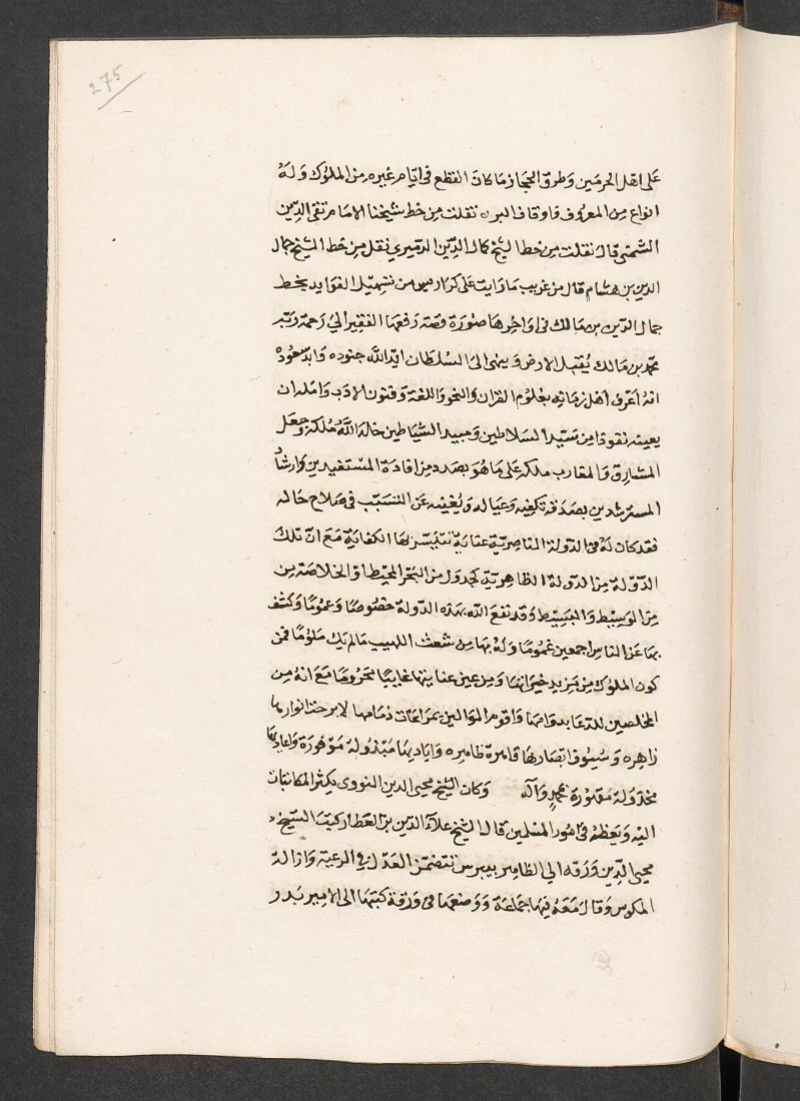 275
على اهل الحرمين وطرق الحجاز ما كان انقطع في ايام غيره من الملوك وله
انواع من المعروف واوقاف البر نقلت من خط شيخنا الامام تقي الدين
الشمني قال نقلت من خط الشيخ كمال الدين الدميري نقل من خط الشيخ جمال
الدين بن هشام قال من غريب ما رايت على كراريس من تسهيل الفوايد بخط
جمال الدين بن مالك في اواخرها صورة قصة رفعها الفقير الى رحمة ربه
محمد بن مالك يقبل الارض وينهى الى السلطان ايد الله جنوده وابد سعوده
انه اعرف اهل زمانه بعلوم القران والنحو واللغة وفنون الادب وامله ان
يعينه نفوذا من سيد السلاطين ومبيد الشياطين خلد الله ملكه وجعل
المشارق والمغارب ملكه على ما هو بصدده من افادة المستفيدين وارشاد
المسترشدين بصدقة تكفيه وعياله وتغنيه عن التسبب في صلاح حاله
فقد كان له في الدولة الناصرية عناية تتيسر لها الكفاية مع ان تلك
الدولة من الدولة الظاهرية كجدول من البحر المحيط او الخلاصة من
من الوسيط والبسيط وقد نفع الله بهذه الدولة خصوصا وعموما وكشف
بها عن الناس اجمعين غموما ولم بها من شعث اللهيب ما لم يك ملموما فمن
كون الملوك من مزيد خيراتها ومن عين عنايتها غايبا محروما مع انه من
المخلصين للدعا بدوامها واقوم الموالين بمراعات ذمامها لا برحت انوارها
زاهره وسيوف انصارها قامرة ظاهره واياديها مبذولة موفورة واعاديها
مخذولة مقهورة محمد وآله وكان الشيخ محيى الدين النووى يكثر المكاتبات
اليه ويعظه في امور المسلمين قال الشيخ علاء الدين بن العطار كتب الشيخ
محيى الدين ورقه الى الظاهر بيبرس تتضمن العدل في الرعية وازالة
المكوس وقال معه فيها جماعة ووضعها في ورقة كتبها الى الامير بدر